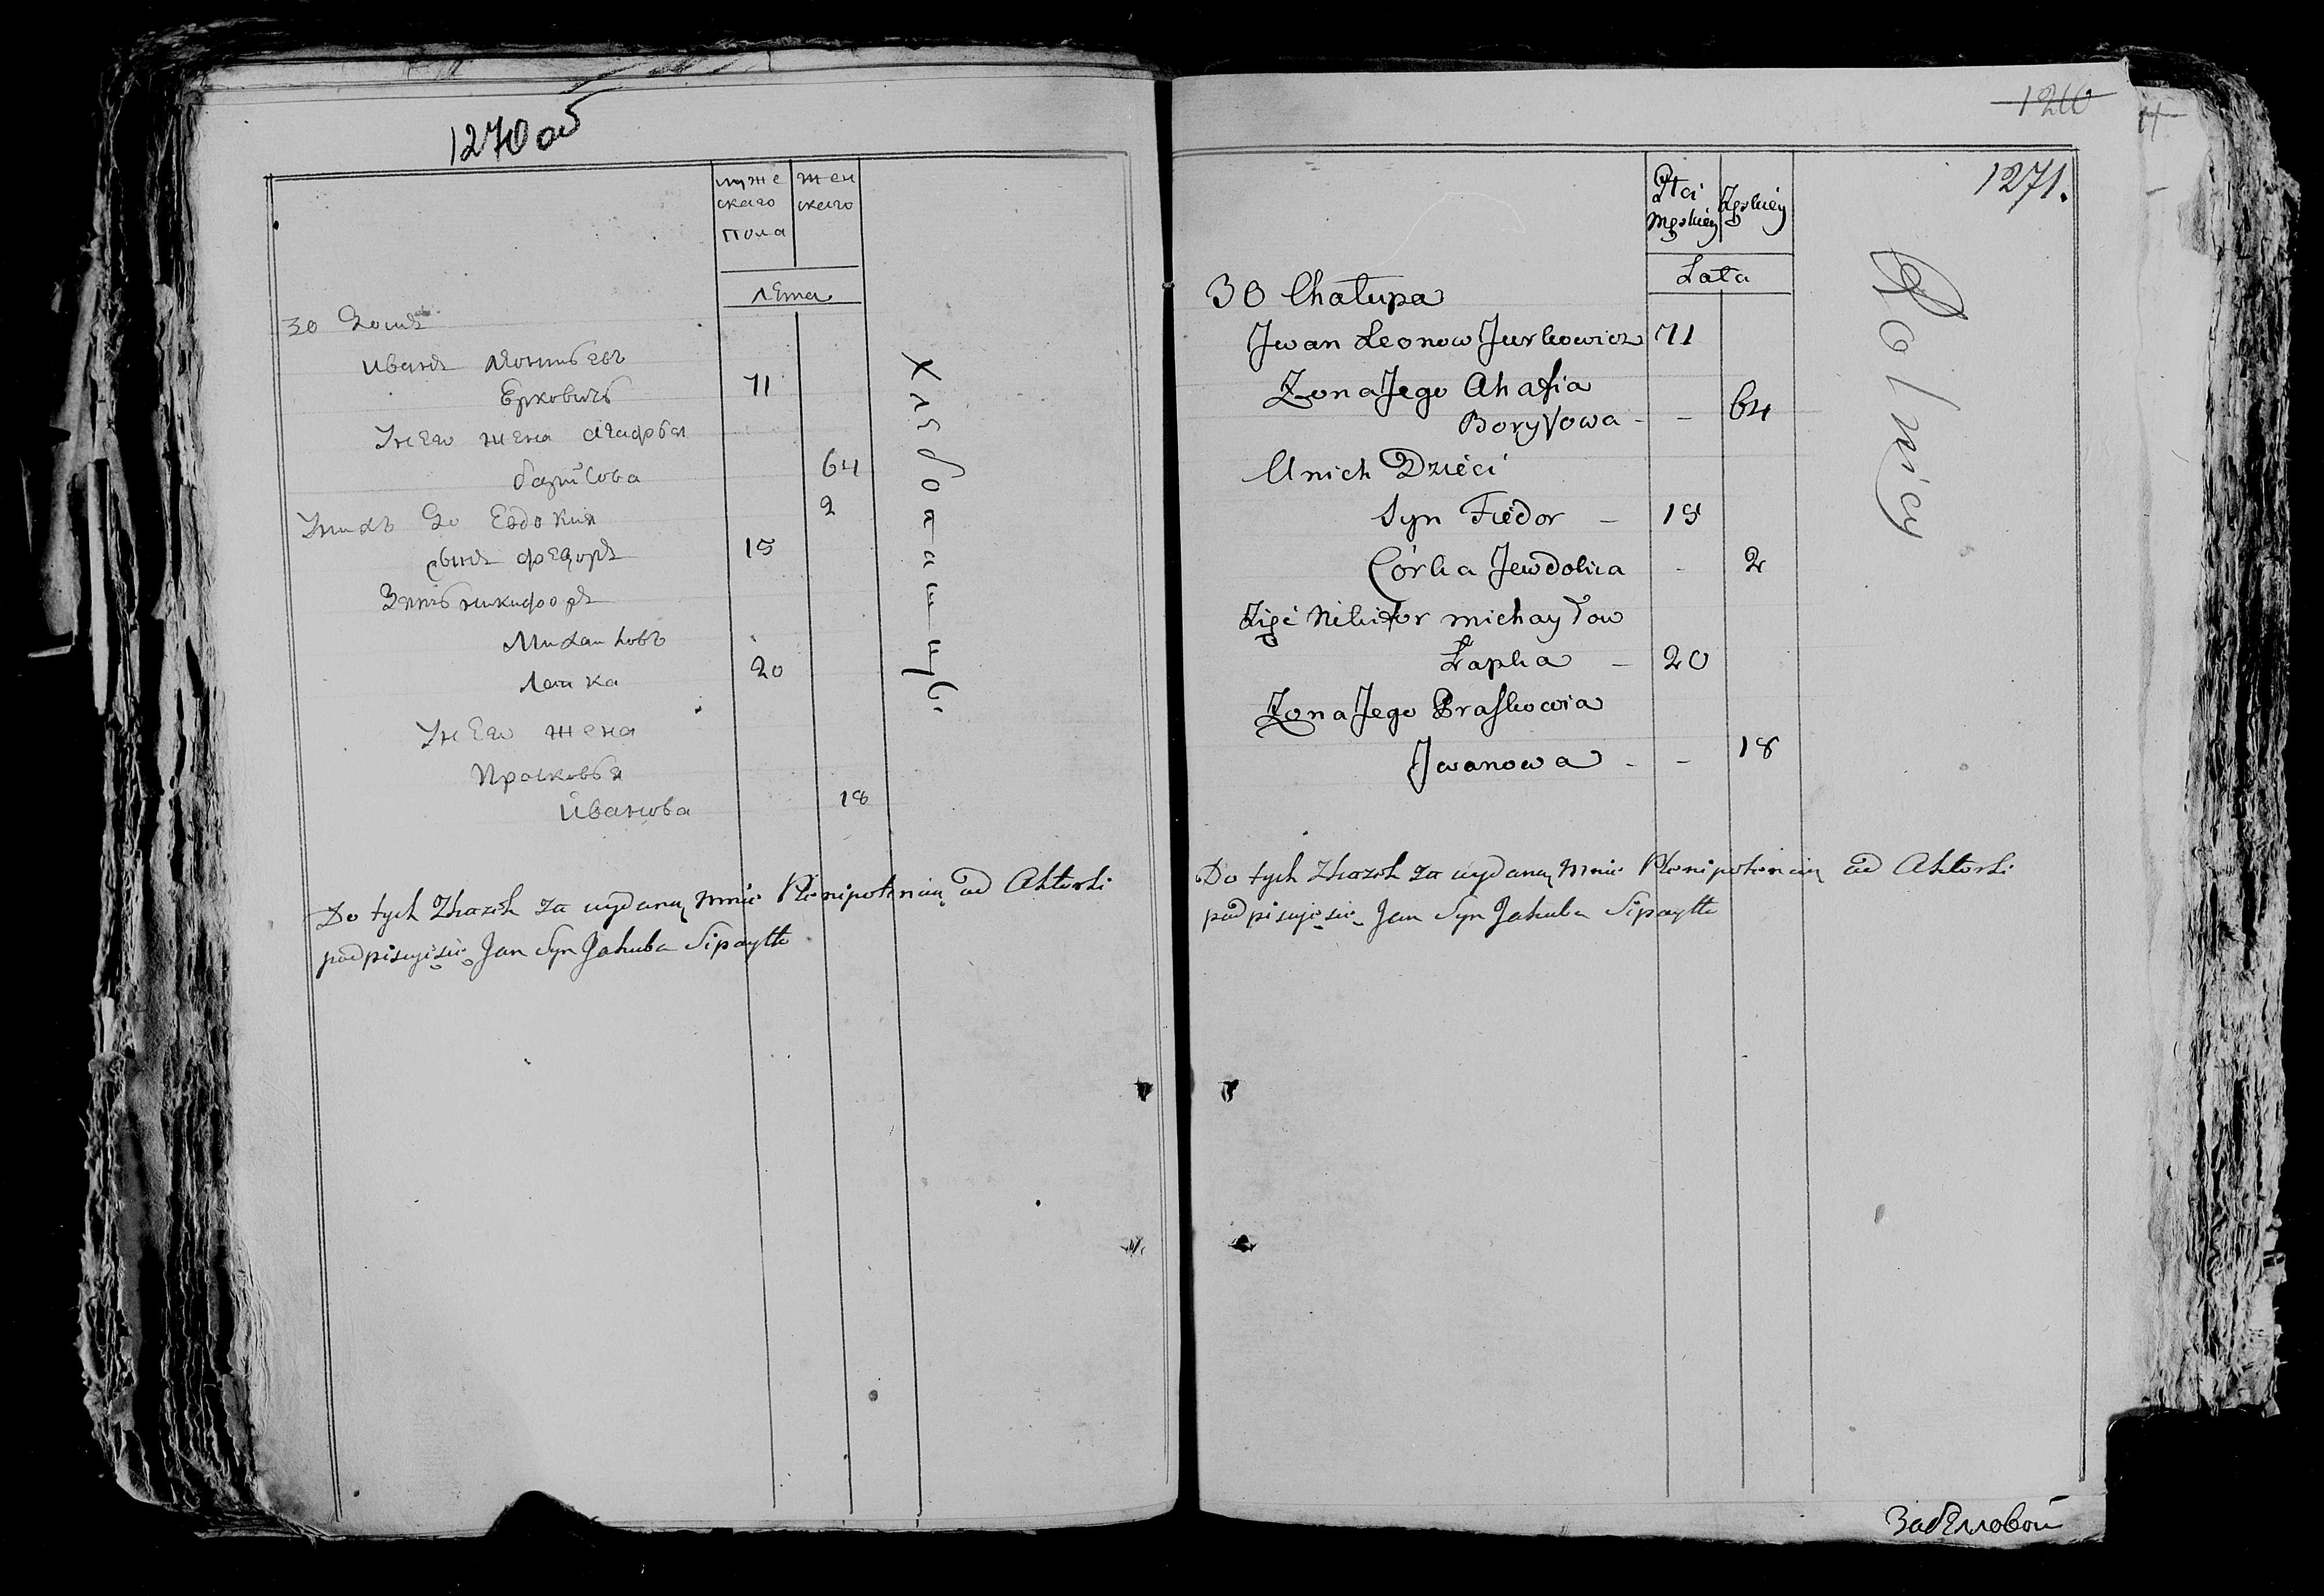 1270 об
муже
скаго
пола
жен
скаго
лета
30 Домъ
Иванъ Леонтьевъ
Ерковичь 71
У него жена Агафья
барисова 64
У нихъ До Евдокия 2
Сынъ Федоръ 15
Зять Никифоръ
Михайловъ
Лапка 20
У него жена
Просковья
Иванова 18
Хлебопашцы
Do tych Skazek za wydaną mnie Plenipotencią od Aktorki
podpisuje sie Jan Syn Jakuba Sipayłło
1210
1271.
Płci
Męskiey
Żęskiey
Lata
30 Chałupa
Jwan Leonow Jurkowicz 71
Żona Jego Ahafia
Borysowa - - 64
U nich Dzieci
Syn Fiedor - 15
Córka Jewdokia - 2
Zięć Nikifor michayłow
Łapka - 20
Żona Jego Praskowia
Jwanowa - - 18
Rolnicy
Do tych Skazek za wydaną mnie Plenipotencią od Aktorki
podpisuje sie Jan Syn Jakuba Sipayłło
Забелловой